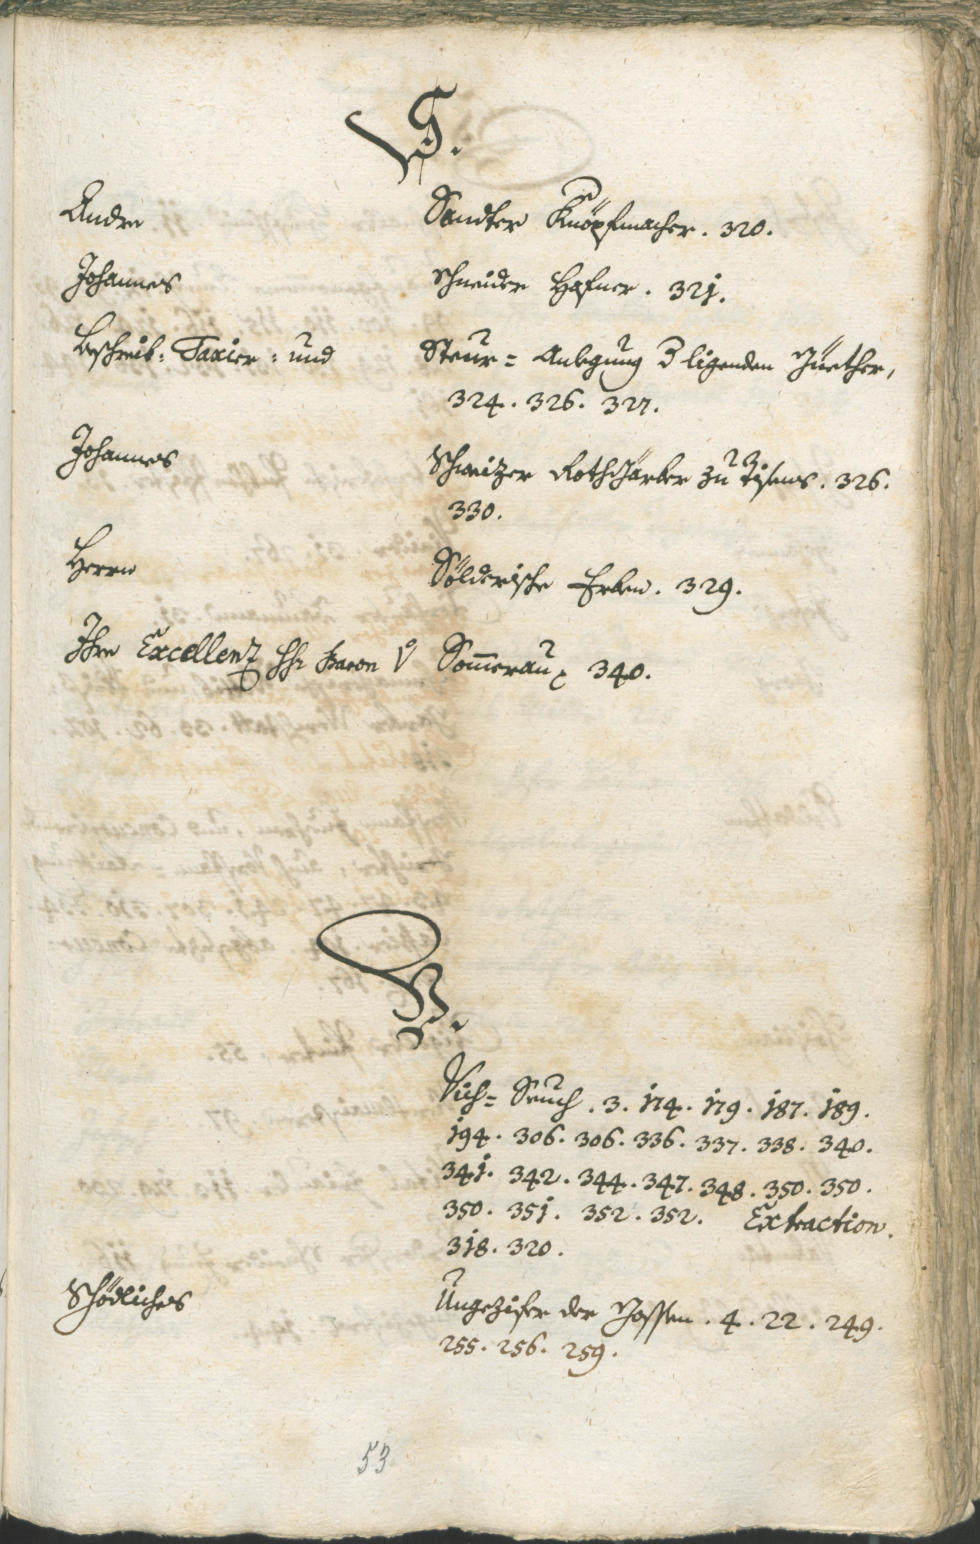 S.
Andre Sandter Knöpfmacher. 320.
Johannes Schneider Hafner. 321.
Beschreib: Taxier: und Steur= Anlegung ligenden Güether,
324. 326. 327.
Johannes Schweizer Rothgärber zu Tisens. 326.
330.
Herrn Sölderische Erben. 329.
Ihre Excellenz Baron v Som̄erau 340.
V.
Vich= Seuch. 3. 174. 179. 187. 189.
194. 306. 306. 336. 337. 338. 340.
341. 342. 344. 347. 348. 350. 350.
350. 351. 352. 352. Extraction.
318. 320.
Schödliches Ungezifer der 4. 22. 249.
255. 256. 259.
53